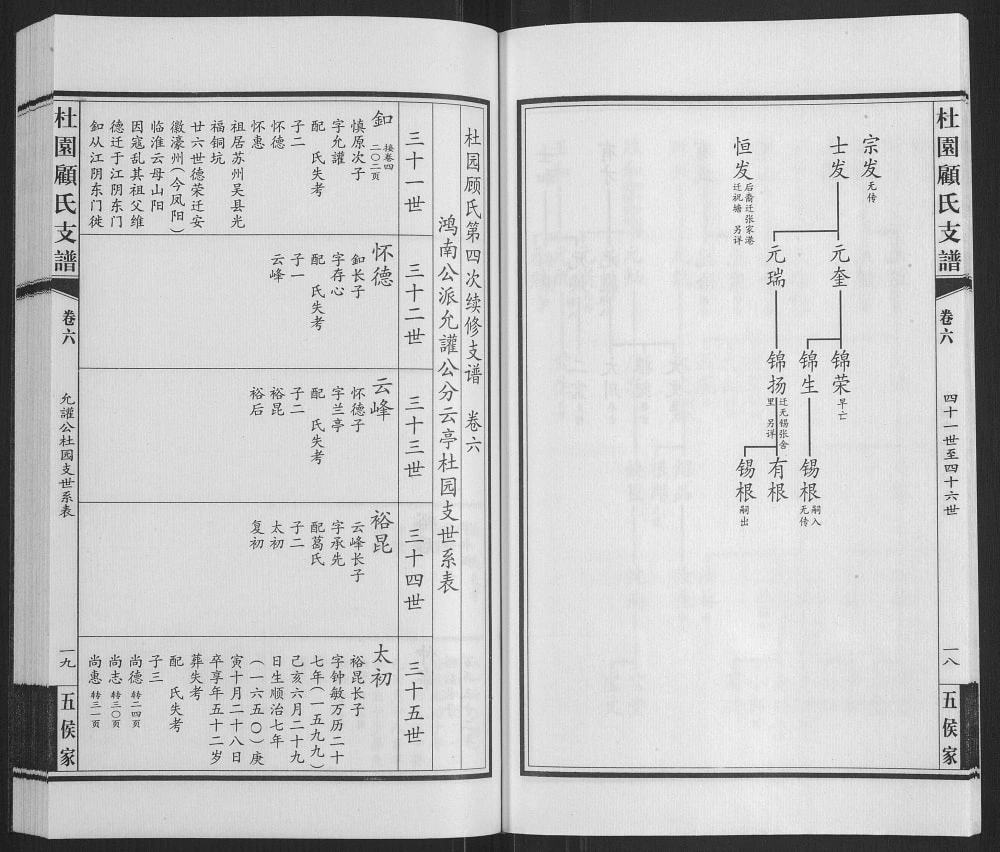 杜園顧氏支譜
卷六
四十一世至四十六世
一八
五侯家
宗发 无传
士发
恒发 后裔迁张家港
迁祝塘 另详
元奎
元瑞
锦荣 早亡
锦生
锦扬 迁无锡张舍
里 另详
锡根 嗣入
无传
有根
锡根 嗣出
杜园顾氏第四次续修支谱 卷六
鸿南公派允讙公分云亭杜园支世系表
三十一世
釦 接卷四
二〇二页
慎原次子
字允讙
配 氏失考
子二
怀德
怀惠
祖居苏州吴县光
福铜坑
廿六世德荣迁安
徽濠州（今凤阳）
临淮云母山阳
因寇乱其祖父维
德迁于江阴东门
釦从江阴东门徙
三十二世
怀德
釦长子
字存心
配 氏失考
子一
云峰
三十三世
云峰
怀德子
字兰亭
配 氏失考
子二
裕昆
裕后
三十四世
裕昆
云峰长子
字承先
配葛氏
子二
太初
复初
三十五世
太初
裕昆长子
字钟敏万历二十
七年（一五九九）
己亥六月二十九
日生顺治七年
（一六五〇）庚
寅十月二十八日
卒享年五十二岁
葬失考
配 氏失考
子三
尚德 转二四页
尚志 转三〇页
尚惠 转三一页
杜園顧氏支譜
卷六
允讙公杜园支世系表
一九
五侯家